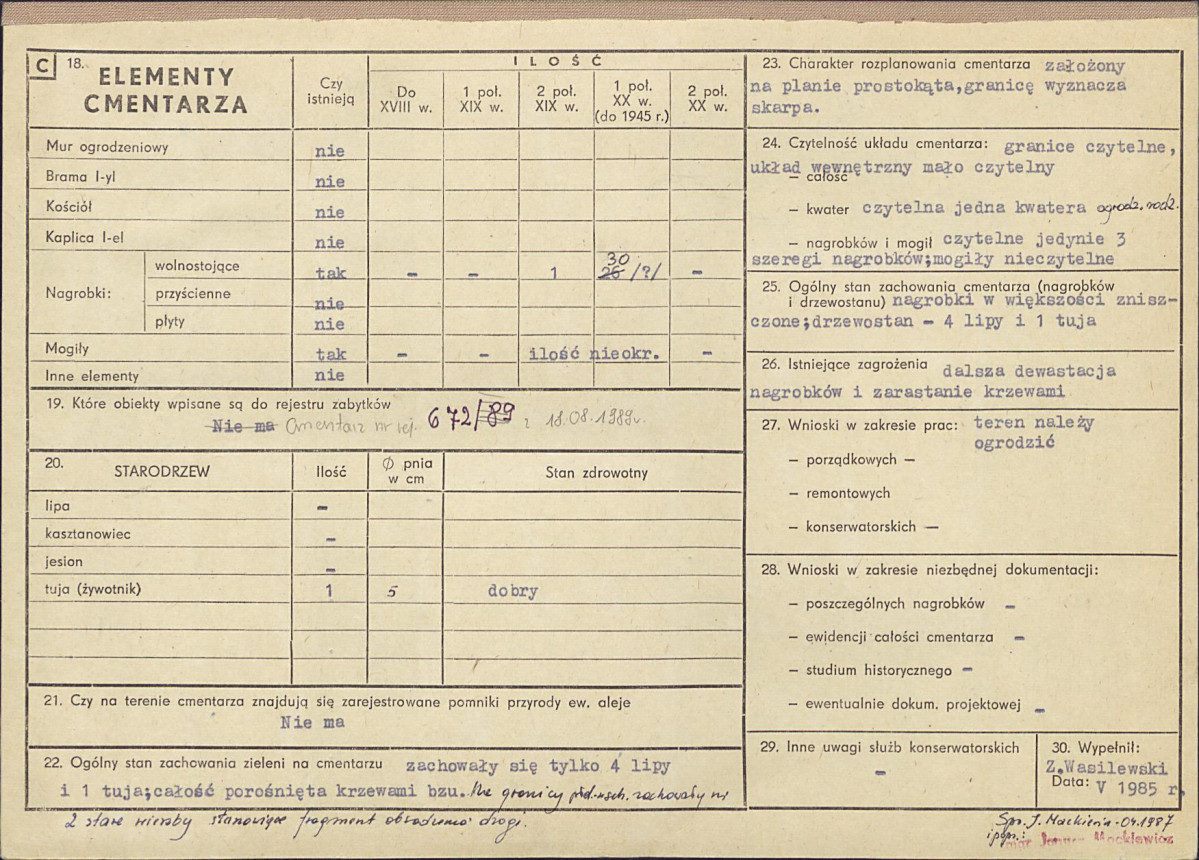 C 18. ELEMENTY CMENTARZA
Czy istnieją
ILOŚĆ
Do XVIII w.
1 poł. XIX w.
2 poł. XIX w.
1 poł. XX w. (do 1945 r.)
2 poł. XX w.
Mur ogrodzeniowy nie
Brama I-yl nie
Kościół nie
Kaplica I-el nie
Nagrobki: wolnostojące tak - - 1 30 26 /?/ -
przyścienne nie
płyty nie
Mogiły tak - - ilość nieokr. -
Inne elementy nie
19. Które obiekty wpisane są do rejestru zabytków
Nie ma Cmentarz nr rej. 672/89 z 18.08.1989r.
20. STARODRZEW Ilość Ø pnia w cm Stan zdrowotny
lipa -
kasztanowiec -
jesion -
tuja (żywotnik) 1 5 dobry
21. Czy na terenie cmentarza znajdują się zarejestrowane pomniki przyrody ew. aleje
Nie ma
22. Ogólny stan zachowania zieleni na cmentarzu zachowały się tylko 4 lipy
i 1 tuja;całość porośnięta krzewami bzu. Na granicy płd.-wsch. zachowały się
2 stare wierzby stanowiące fragment obsadzenia drogi.
23. Charakter rozplanowania cmentarza założony
na planie prostokąta,granicę wyznacza
skarpa.
24. Czytelność układu cmentarza: granice czytelne,
układ wewnętrzny mało czytelny
- całość
- kwater czytelna jedna kwatera ogrodz. rodz.
- nagrobków i mogił czytelne jedynie 3
szeregi nagrobków;mogiły nieczytelne
25. Ogólny stan zachowania cmentarza (nagrobków
i drzewostanu) nagrobki w większości znisz-
czone;drzewostan - 4 lipy i 1 tuja
26. Istniejące zagrożenia dalsza dewastacja
nagrobków i zarastanie krzewami
27. Wnioski w zakresie prac: teren należy
ogrodzić
- porządkowych -
- remontowych
- konserwatorskich -
28. Wnioski w zakresie niezbędnej dokumentacji:
- poszczególnych nagrobków -
- ewidencji całości cmentarza -
- studium historycznego -
- ewentualnie dokum. projektowej -
29. Inne uwagi służb konserwatorskich
-
30. Wypełnił:
Z.Wasilewski
Data: V 1985 r.
Spr. J. Mackiewicz - 04.1987
i popr.:
mgr Janusz Mackiewicz